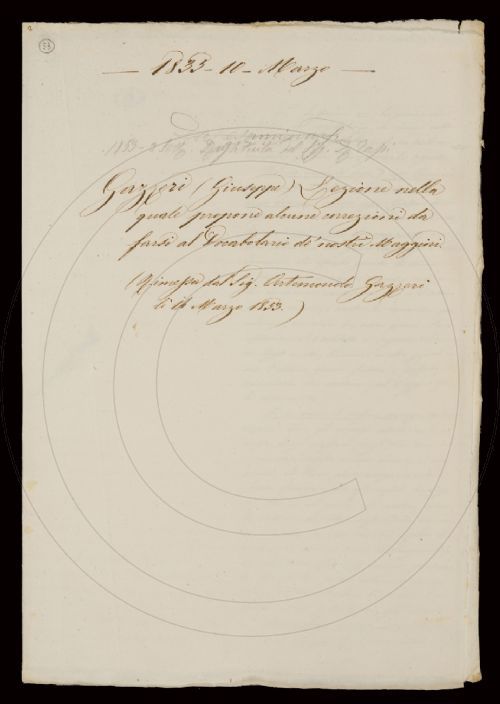 — 1833 – 10 – Marzo —
1853 –
Gazzeri (Giuseppe) Lezione nella
quale propone alcune correzioni da
farsi al Vocabolario de' nostri Maggiori.
(Rimessa dal Sig. Gazzeri
li Marzo 1853.)